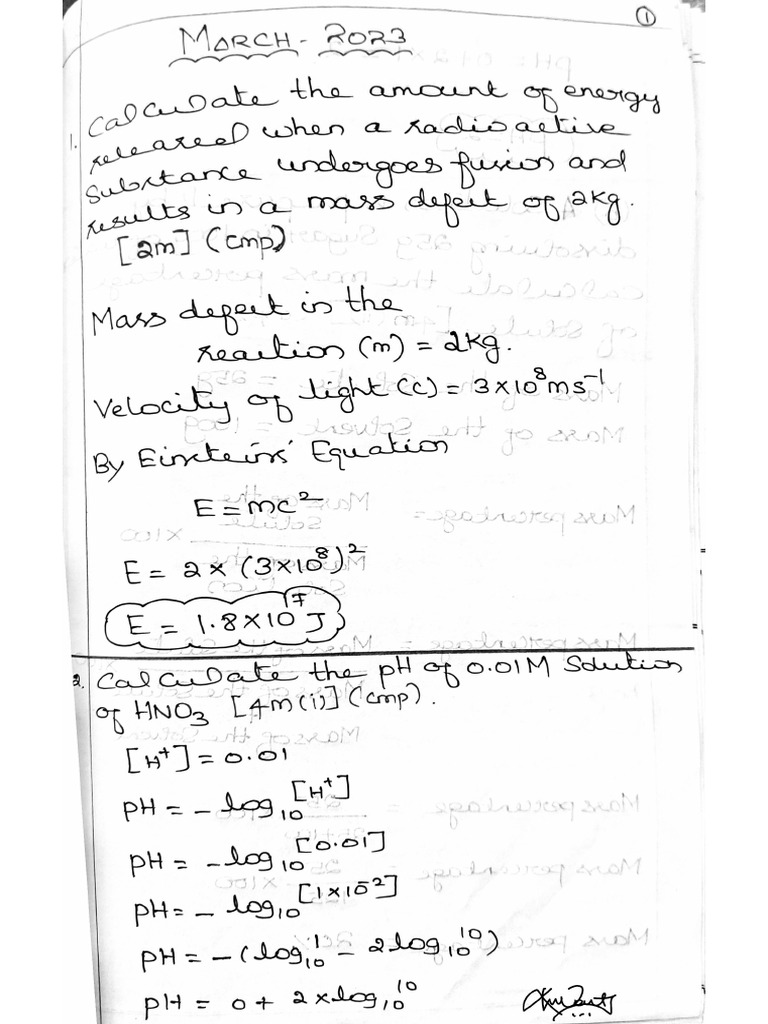 ①
MARCH - 2023
1. Calculate the amount of energy
released when a radioactive
substance undergoes fusion and
results in a mass defect of 2kg.
[2m] (cmp)
Mass defect in the
reaction (m) = 2kg.
Velocity of light (c) = 3×10⁸ms⁻¹
By Einsteins' Equation
E = mc²
E = 2 × (3×10⁸)²
E = 1.8×10¹⁷ J
2. Calculate the pH of 0.01M Solution
of HNO₃ [4m(i)] (cmp).
[H⁺] = 0.01
pH = - log₁₀ [H⁺]
pH = - log₁₀ [0.01]
pH = - log₁₀ [1×10⁻²]
pH = - (log₁₀ 1 - 2 log₁₀ 10)
pH = 0 + 2 × log₁₀ 10